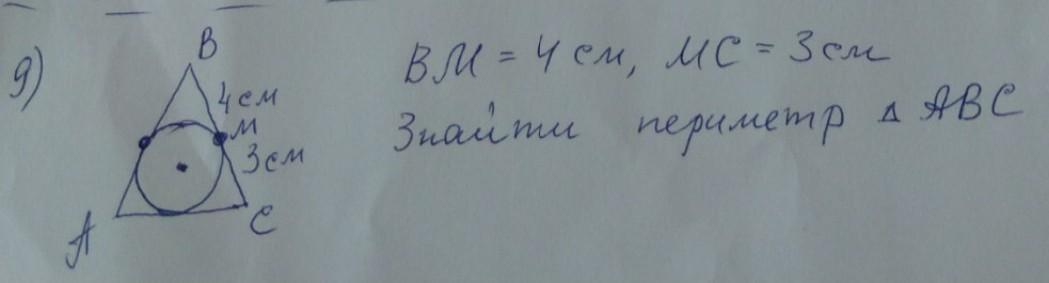 9)
B
4 см
M
3 см
A
C
BM = 4 см, MC = 3 см
Знайти периметр Δ ABC